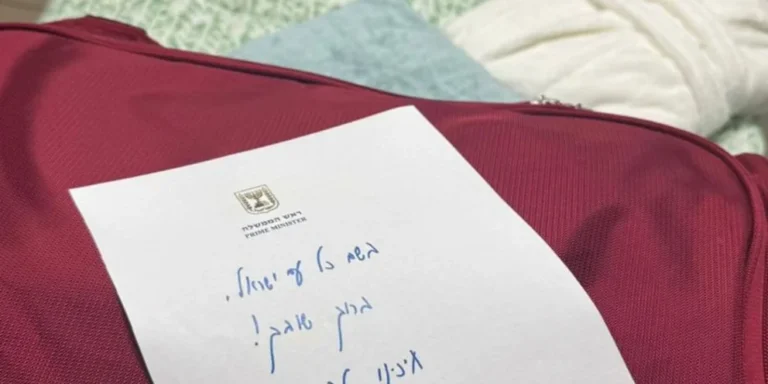 ראש הממשלה
PRIME MINISTER
בשם כל עם ישראל,
ברוך שובך!
חיכינו